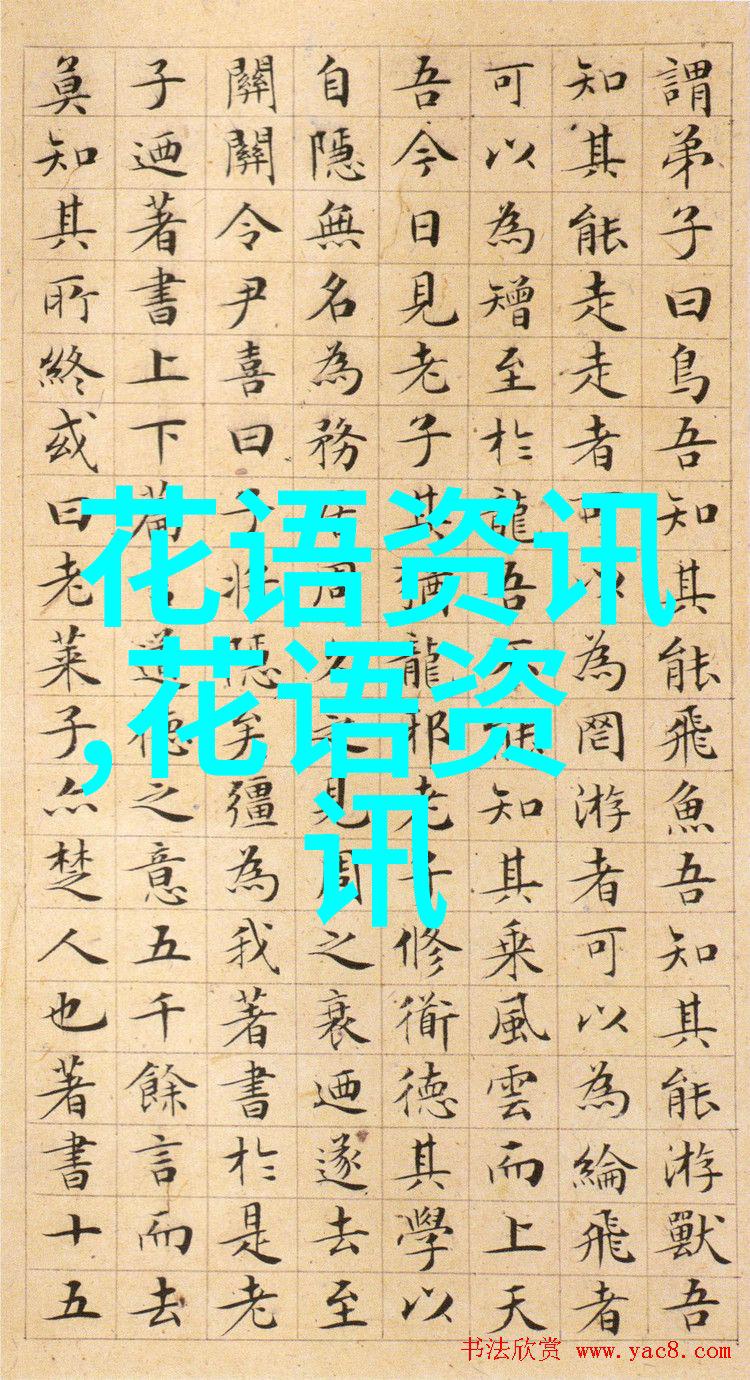 謂弟子曰鳥吾知其能飛魚吾知其能游獸吾
知其能走走者可以為罔游者可以為綸飛者
可以為矰至於龍吾不能知其乘風雲而上天
吾今日見老子其猶龍邪老子修衜德其學以
自隱無名為務居周久之見周之衰迺遂去至
關關令尹喜曰子將隱矣彊為我著書於是老
子迺著書上下篇言道德之意五千餘言而去
莫知其所終或曰老萊子亦楚人也著書十五
花语资讯
,花语资
讯
书法欣赏 www.yac8.com